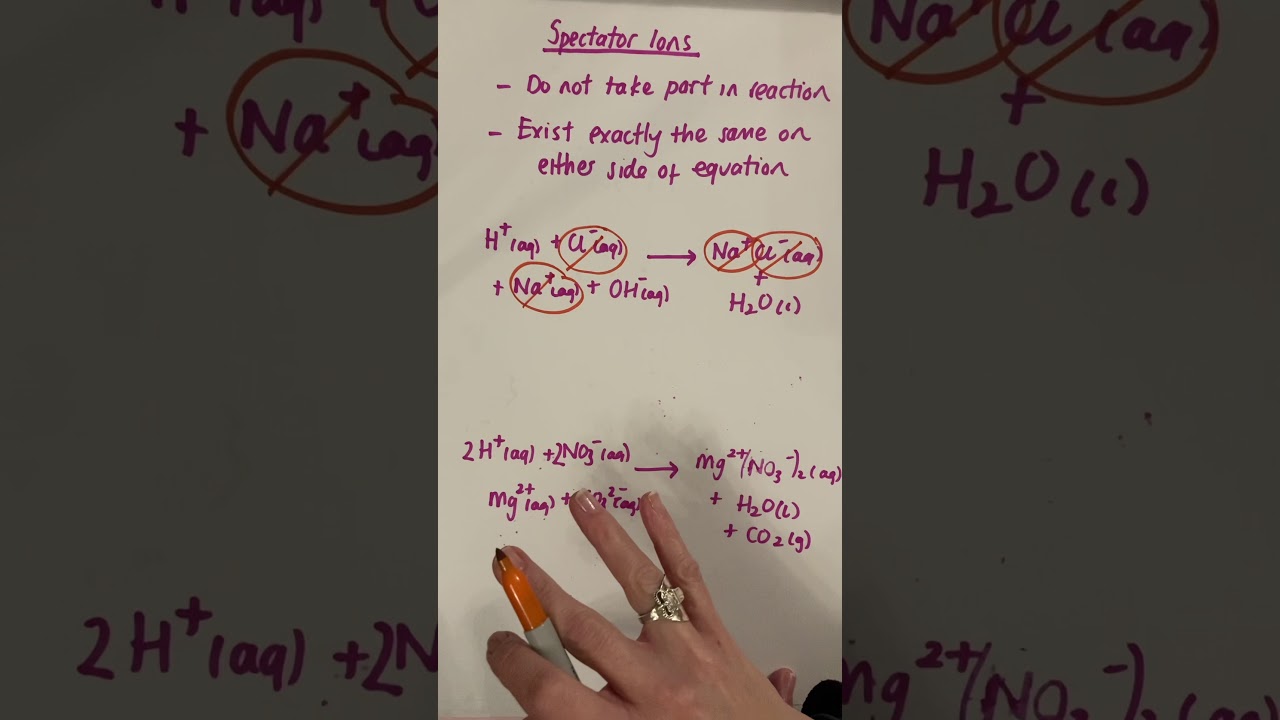 Spectator Ions
- Do not take part in reaction
- Exist exactly the same on
either side of equation
H⁺(aq) + Cl⁻(aq) → Na⁺Cl⁻(aq)
+ Na⁺(aq) + OH⁻(aq) +
H₂O(l)
2H⁺(aq) + 2NO₃⁻(aq) → Mg²⁺(NO₃⁻)₂(aq)
Mg²⁺(aq) + + H₂O(l)
+ CO₂(g)